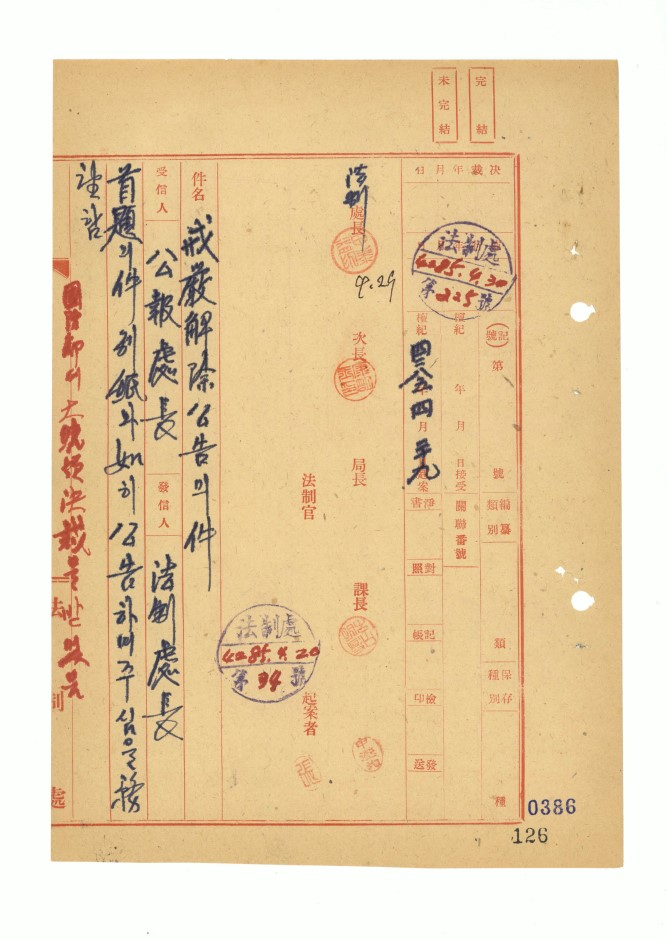 完結
未完結
決裁年月日
(記號)
第
號
編纂類別
類
保存種別
種
檀紀
年
月
日接受
關聯番號
法制處
4285.4.30
第225號
檀紀
四二八五
年
四
月
二九
起案
淨書
對照
記帳
檢印
發送
法制處長
4.29
次長
局長
課長
法制官
起案者
法制處
4285.4.20
第94號
件名
戒嚴解除公告의件
受信人
公報處長
發信人
法制處長
首題의件別紙와如히公告하여주심을務
望함
國防部에서大統領決裁를받았음
法
制
處
0386
126